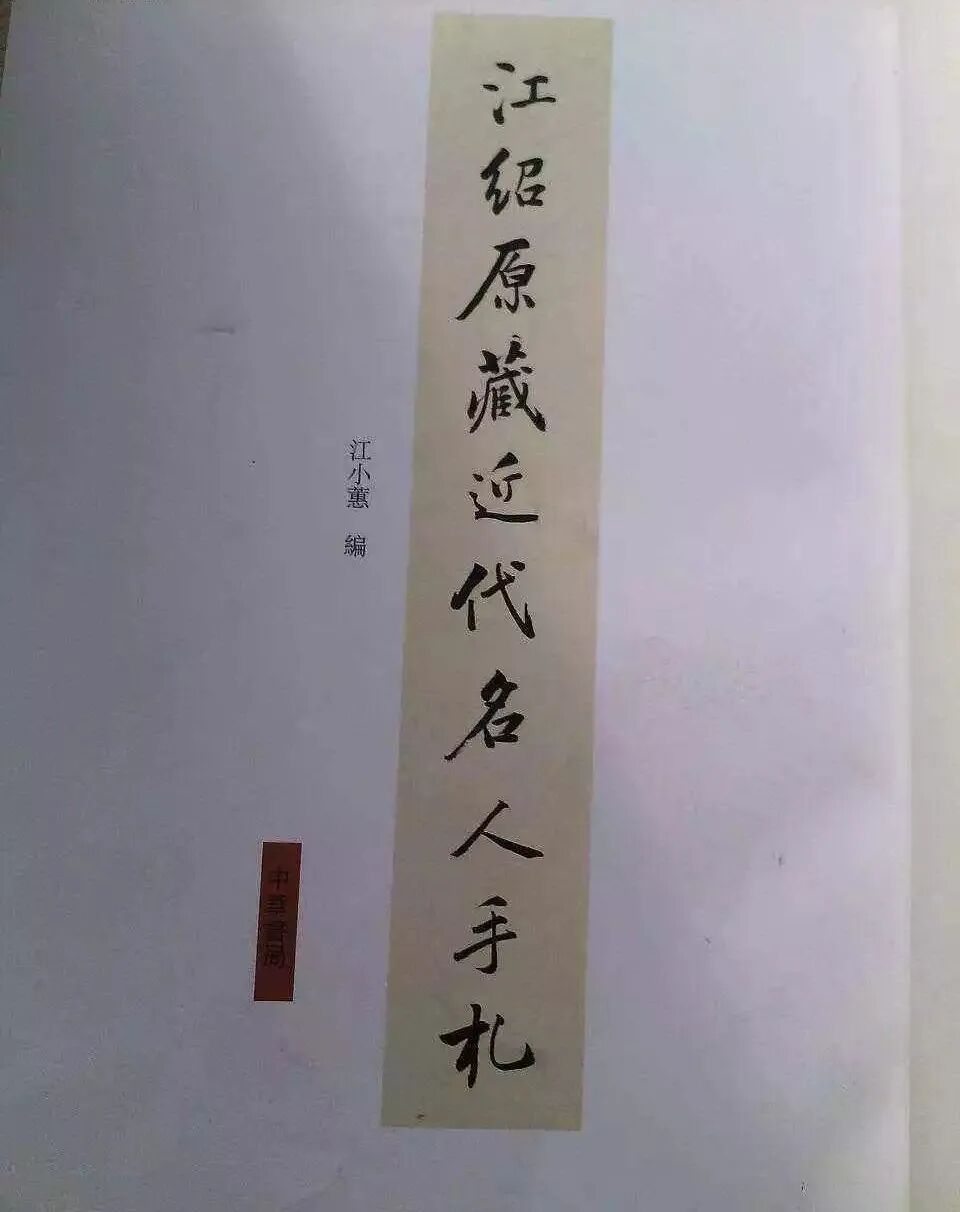 江绍原藏近代名人手札
江小蕙 編
中華書局